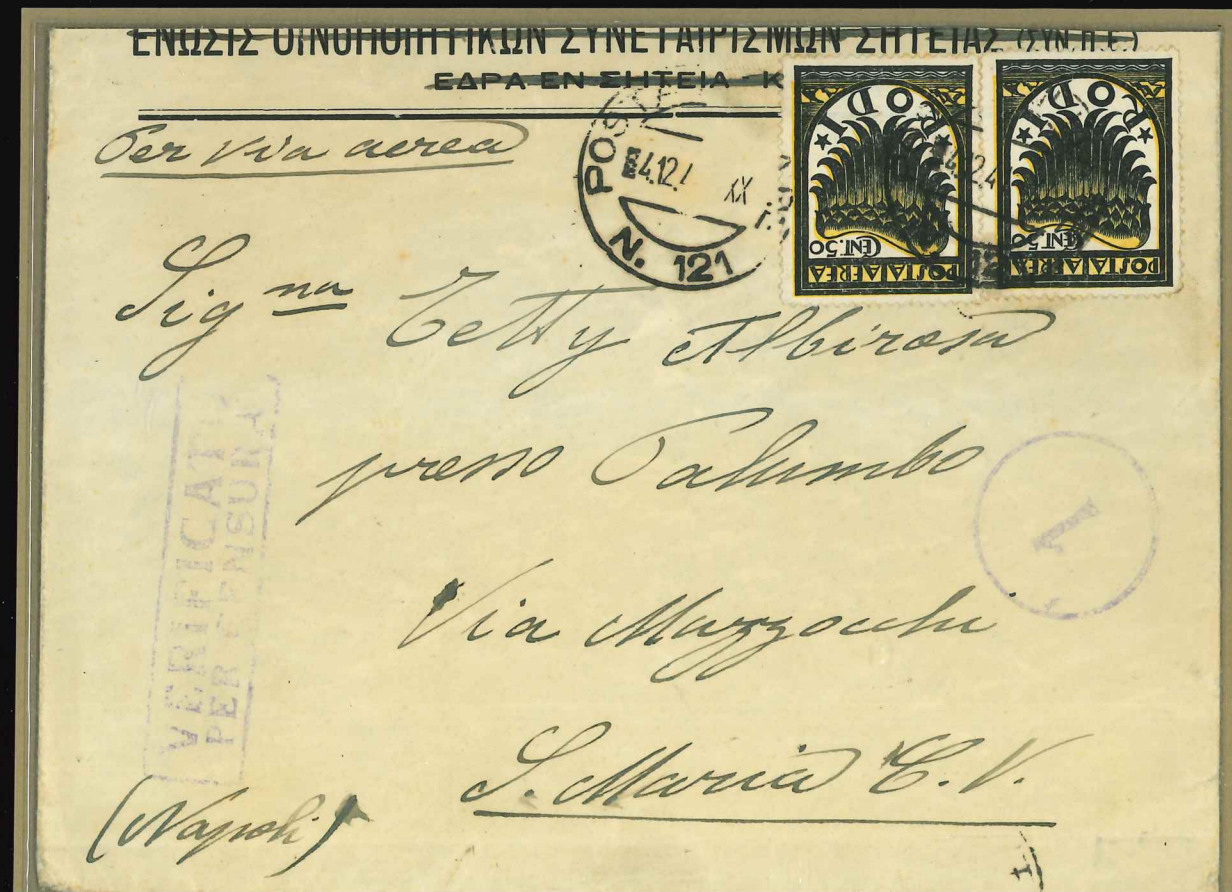 ΕΝΩΣΙΣ ΟΙΝΟΠΟΙΗΤΙΚΩΝ ΣΥΝΕΤΑΙΡΙΣΜΩΝ ΣΗΤΕΙΑΣ (ΣΥΝ.Π.Ε.)
ΕΔΡΑ ΕΝ ΣΗΤΕΙΑ - Κ
Per via aerea
POSTA
4.12.4 XX
N. 121
RODI
CENT. 50
POSTA AEREA
RODI
CENT. 50
POSTA AEREA
Sig na Tetty Albirosa
presso Palumbo
Via Mazzocchi
S. Maria C. V.
(Napoli)
VERIFICAT
PER CENSURA
1